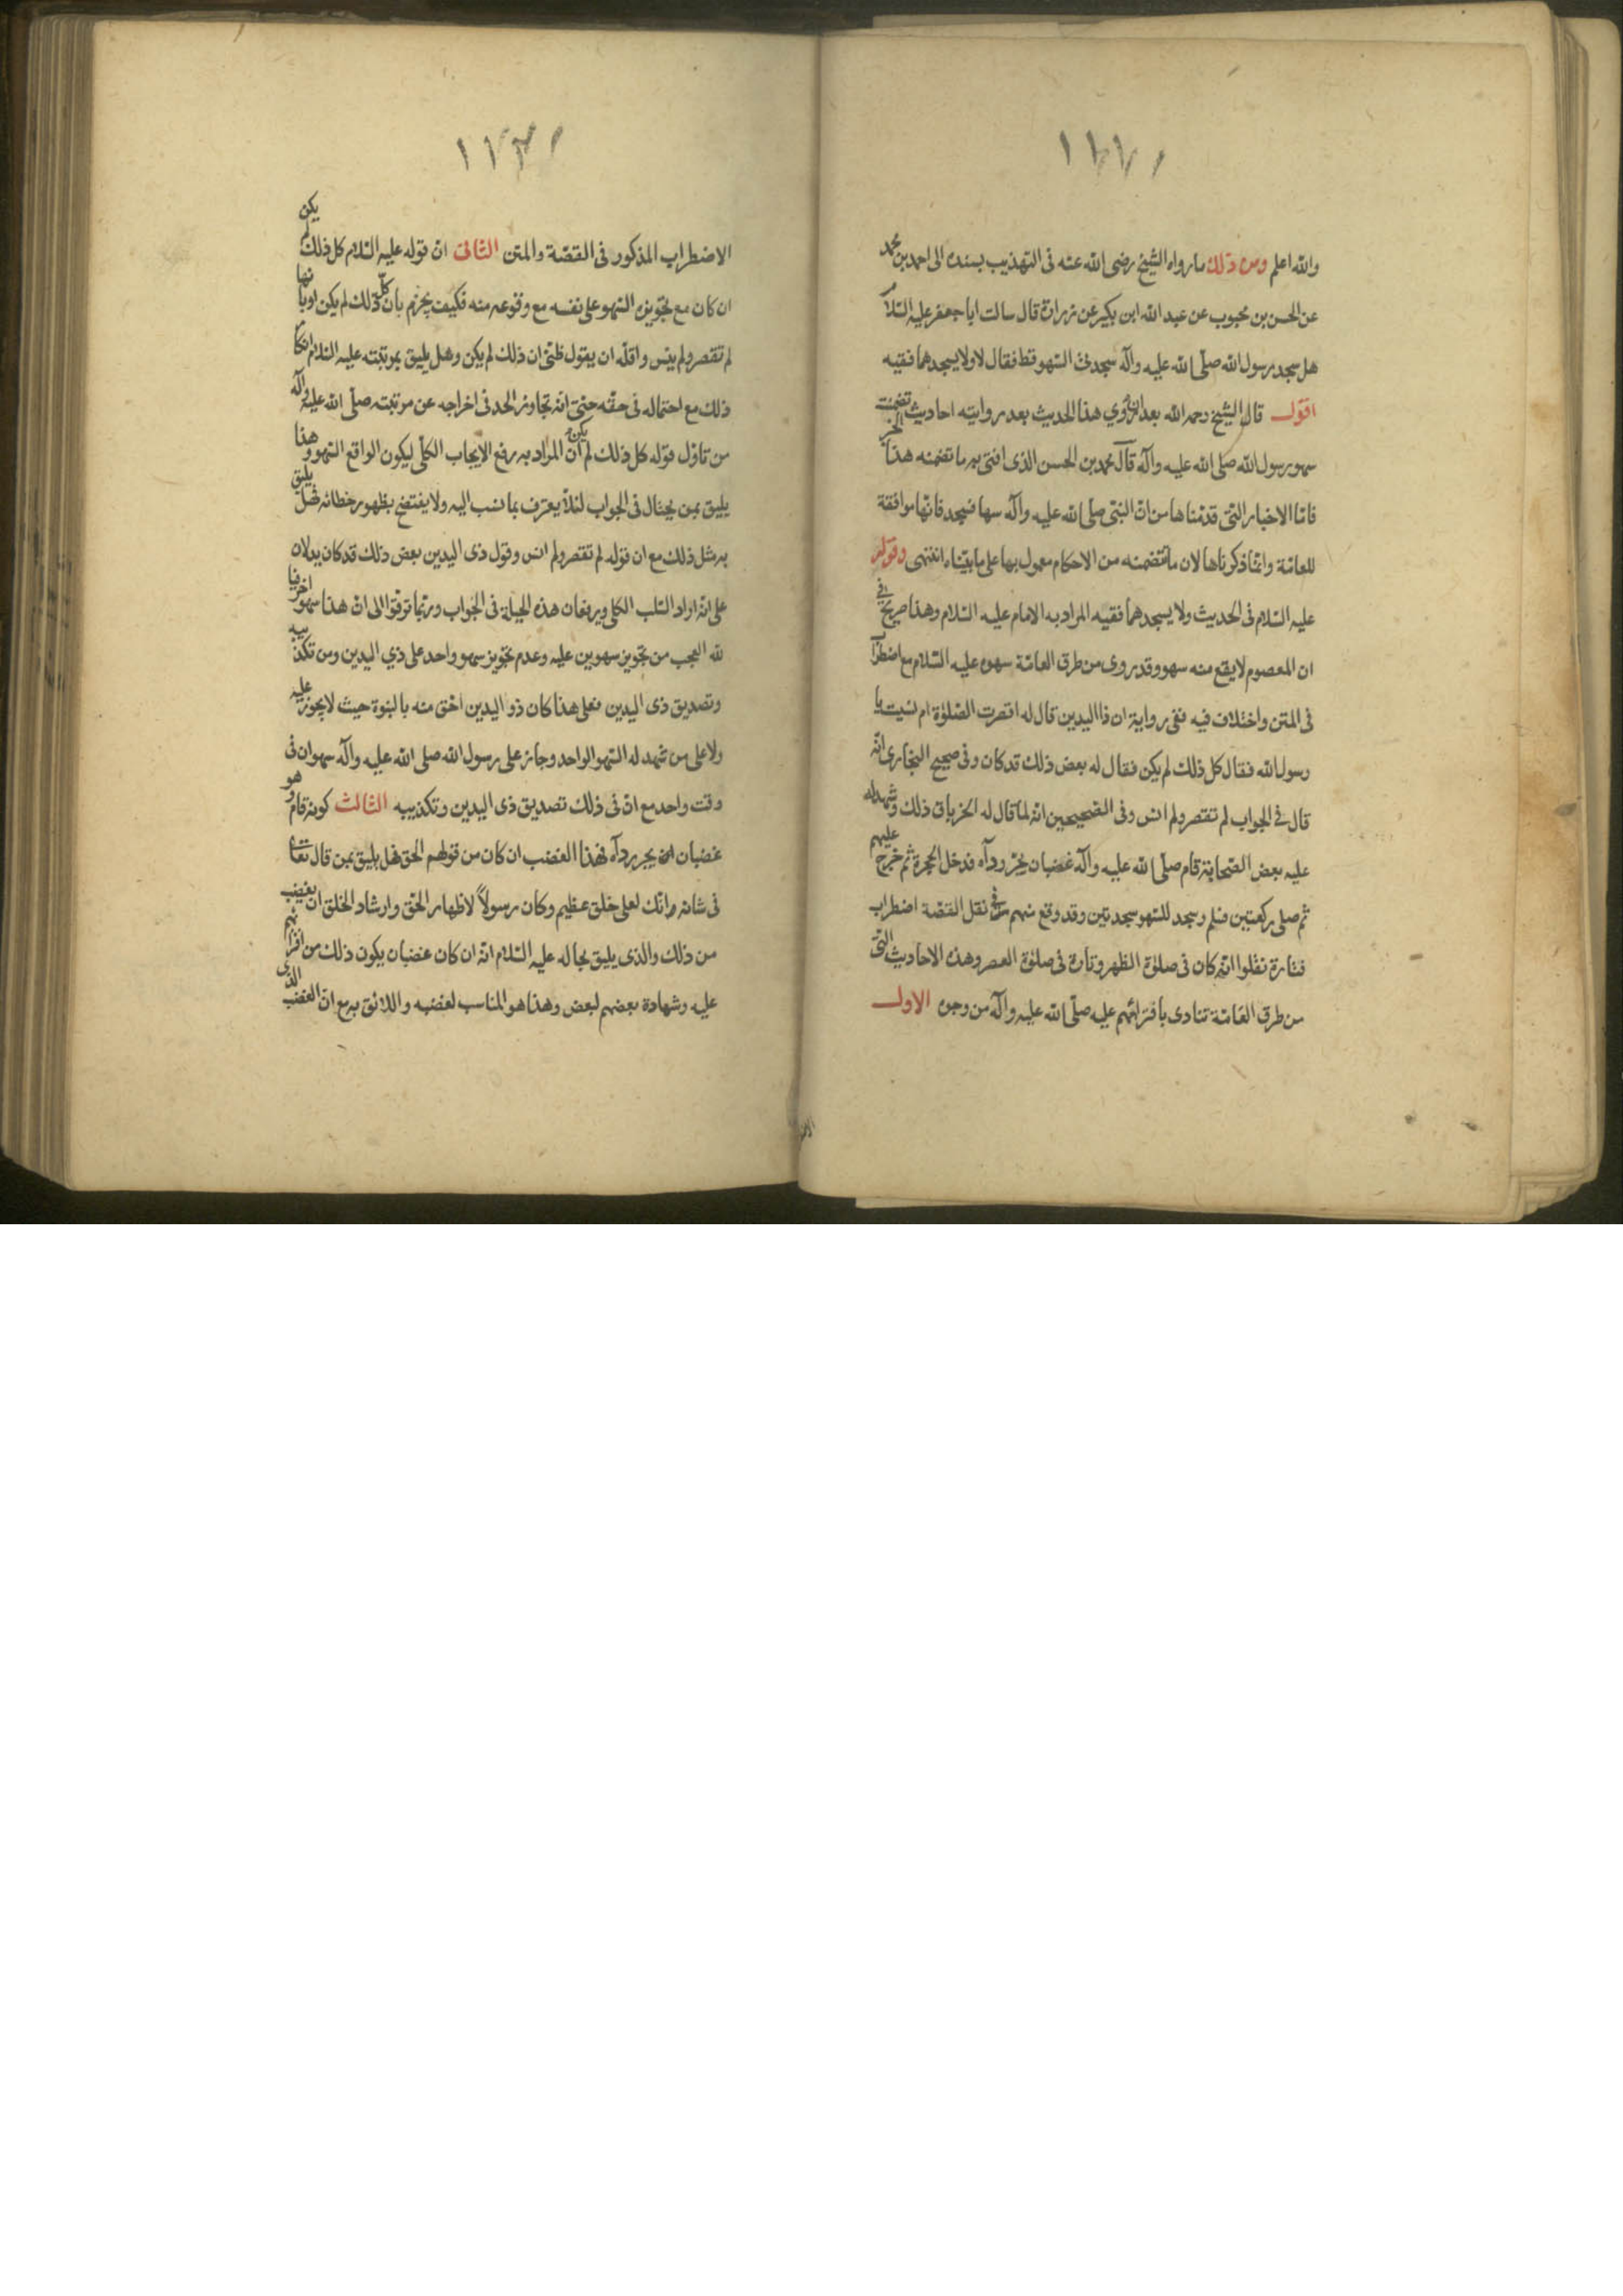 والله اعلم ومن ذلك ما رواه الشيخ رضى الله عنه فى التهذيب بسنده الى احمد بن محمد
عن الحسن بن محبوب عن عبد الله ابن بكير عن زرارة قال سالت ابا جعفر عليه السلام
هل سجد رسول الله صلى الله عليه وآله سجدتى السهو قط فقال لا ولا يسجدهما فقيه
اقول قال الشيخ رحمه الله بعد ان روي هذا الحديث بعد روايته احاديث تضمنت
سهو رسول الله صلى الله عليه وآله قال محمد بن الحسن الذى افتى به ما تضمنه هذا الخبر
فاما الاخبار التى قدمناها من ان النبى صلى الله عليه وآله سها فسجد فانها موافقة
للعامة وانما ذكرناها لان ما تتضمنه من الاحكام معمول بها على ما بيناه انتهى وقوله
عليه السلام فى الحديث ولا يسجدهما فقيه المراد به الامام عليه السلام وهذا صريح في
ان المعصوم لا يقع منه سهو وقد روى من طرق العامة سهوه عليه السلام مع اضطراب
فى المتن واختلاف فيه ففى رواية ان ذا اليدين قال له اقصرت الصلوة ام نسيت يا
رسول الله فقال كل ذلك لم يكن فقال له بعض ذلك قد كان وفى صحيح البخارى انه
قال في الجواب لم تقصر ولم انس وفى الصحيحين انه لما قال له الخرباق ذلك وشهد له
عليه بعض الصحابة قام صلى الله عليه وآله غضبان يجر رداه فدخل الحجرة ثم خرج عليهم
ثم صلى ركعتين فسلم وسجد للسهو سجدتين وقد وقع منهم فى نقل القصة اضطراب
فتارة نقلوا انه كان فى صلوة الظهر وتارة فى صلوة العصر وهذه الاحاديث التى
من طرق العامة تنادى بافترائهم عليه صلى الله عليه وآله من وجوه الاول
الاضطراب المذكور فى القصة والمتن الثانى ان قوله عليه السلام كل ذلك لم يكن
ان كان مع تجويزه السهو على نفسه مع وقوعه منه فكيف يجزم بان كل ذلك لم يكن او بانها
لم تقصر ولم ينس واقله ان يقول ظنى ان ذلك لم يكن وهل يليق بمرتبته عليه السلام انكار
ذلك مع احتماله فى حقه حتى انه تجاوز الحد فى اخراجه عن مرتبته صلى الله عليه وآله
من تاول قوله كل ذلك لم يكن ان المراد به رفع الايجاب الكلى ليكون الواقع السهو وهذا
يليق بمن يحتال فى الجواب لئلا يعترف بما نسب اليه ولا يفتضح بظهور خطائه فهل يليق
به مثل ذلك مع ان قوله لم تقصر ولم انس وقول ذى اليدين بعض ذلك قد كان يدلان
على انه اراد السلب الكلى ويرفعان هذه الحيلة فى الجواب وربما ترقوا الى ان هذا سهو اخر فيا
لله العجب من تجويز سهوين عليه وعدم تجويز سهو واحد على ذي اليدين ومن تكذيبه
وتصديق ذى اليدين فعلى هذا كان ذو اليدين احق منه بالنبوة حيث لا يجوز عليه
ولا على من شهد له السهو الواحد وجاز على رسول الله صلى الله عليه وآله سهوان فى
وقت واحد مع ان فى ذلك تصديق ذى اليدين وتكذيبه الثالث كونه قام وهو
غضبان يجر رداه فهذا الغضب ان كان من قولهم الحق فهل يليق بمن قال تعالى
فى شانه وانك لعلى خلق عظيم وكان رسولاً لاظهار الحق وارشاد الخلق ان يغضب
من ذلك والذى يليق بحاله عليه السلام انه ان كان غضبان يكون ذلك من افترائهم
عليه وشهادة بعضهم لبعض وهذا هو المناسب لغضبه واللائق به مع ان الغضب الذى